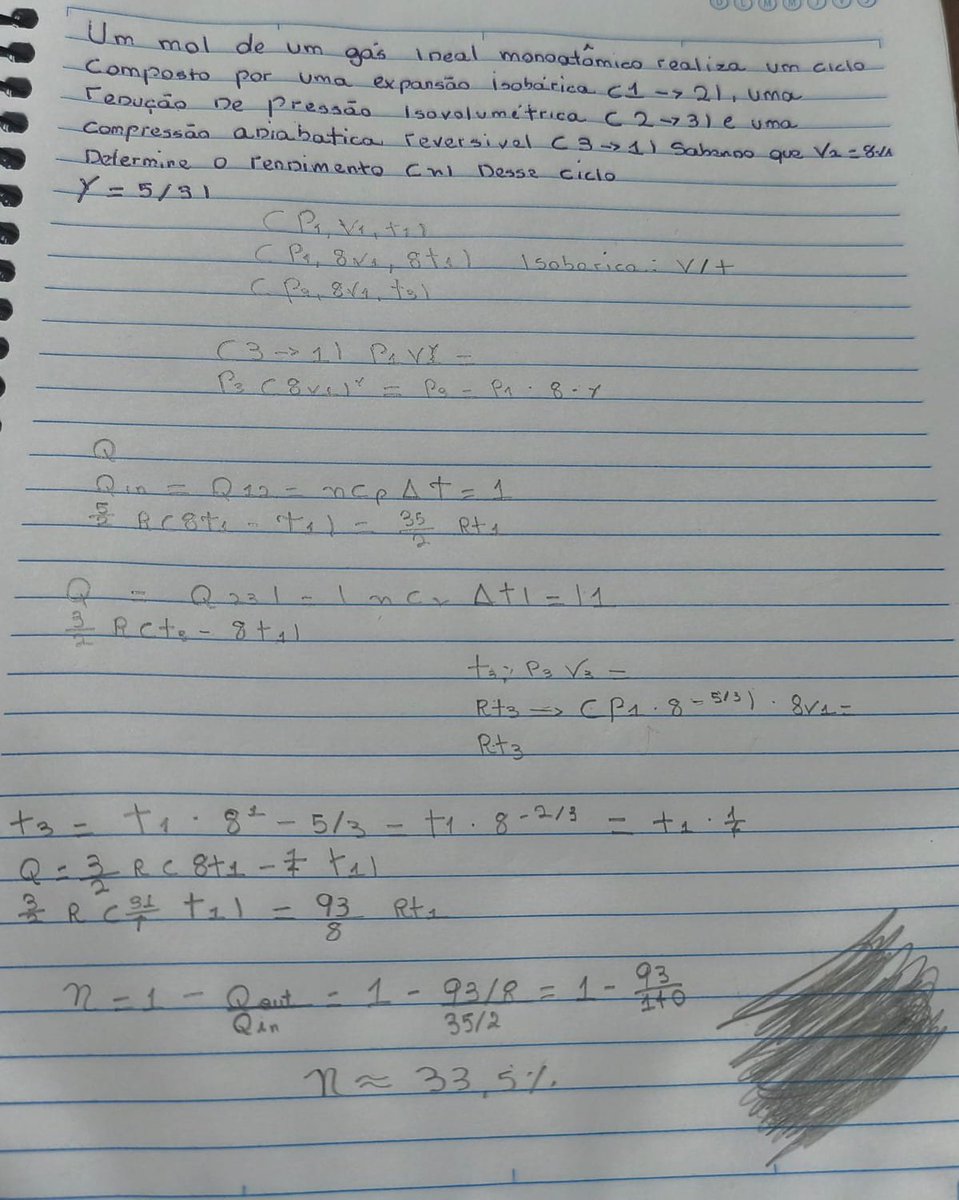 Um mol de um gás Ideal monoatômico realiza um ciclo
Composto por uma expansão isobárica (1 -> 2), uma
redução De pressão Isovolumétrica (2 -> 3) e uma
Compressão adiabatica reversivel (3 -> 1) Sabendo que V2 = 8V1
Determine o rendimento (n) Desse ciclo
γ = 5/3)
(P1, V1, t1)
(P1, 8V1, 8t1) Isobarica: V/t
(P3, 8V1, t3)
(3 -> 1) P1 V1^γ =
P3 (8V1)^γ = P3 = P1 · 8 - γ
Q
Qin = Q12 = ncp Δt = 1
5/2 R(8t1 - t1) = 35/2 Rt1
Q = Q23| = |ncv Δt| = |1
3/2 R(t3 - 8t1)
t3; P3 V3 =
Rt3 => (P1 · 8^-5/3) · 8V1 =
Rt3
t3 = t1 · 8^1 - 5/3 = t1 · 8^-2/3 = t1 · 1/4
Q = 3/2 R(8t1 - 1/4 t1)
3/2 R (31/4 t1) = 93/8 Rt1
n = 1 - Qout/Qin = 1 - 93/8/35/2 = 1 - 93/140
n ≈ 33,5%